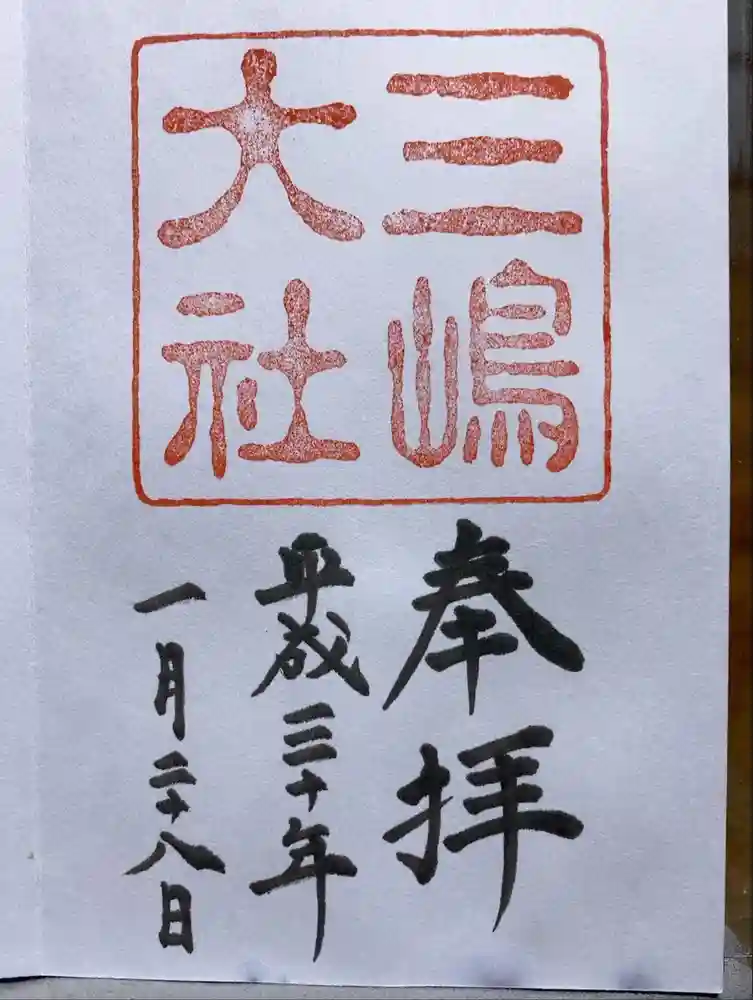 三嶋
大社
奉拝
平成三十年
一月二十八日